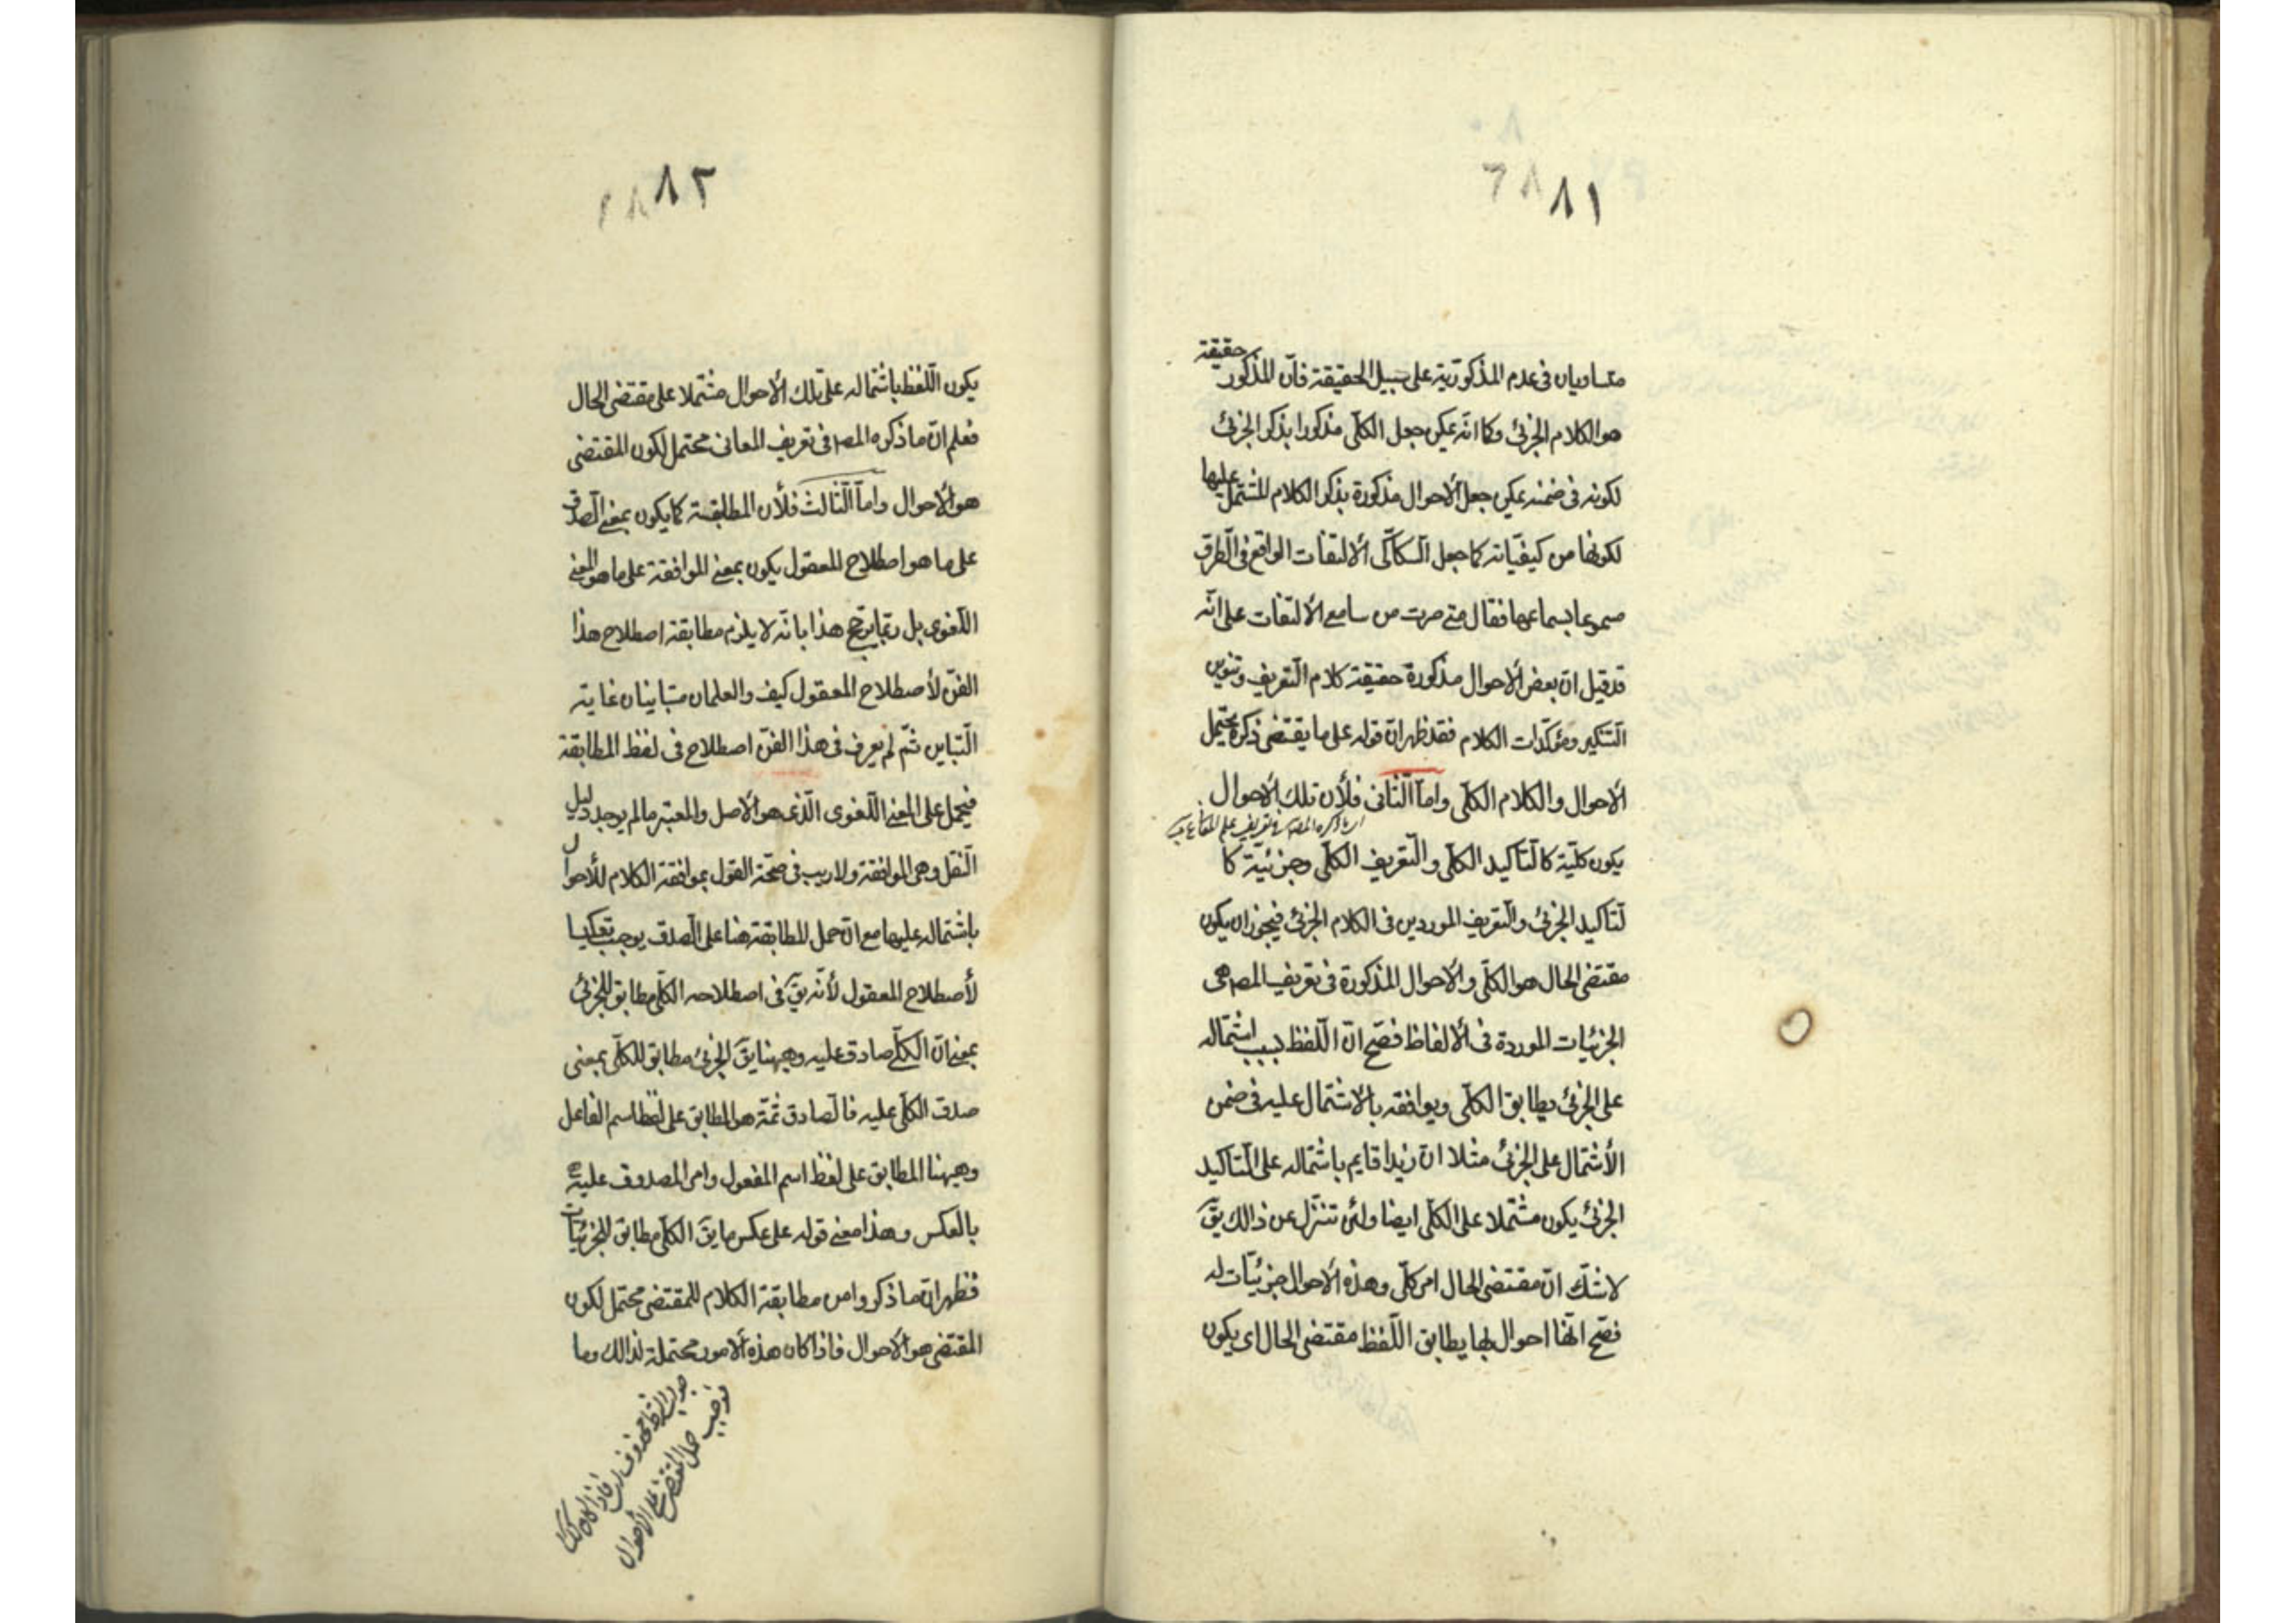 ٨١
متساويان فى عدم المذكوريّة على سبيل الحقيقة فانّ المذكور حقيقة
هو الكلام الجزئى وكما انّه يمكن جعل الكلّى مذكورا بذكر الجزئى
لكونه فى ضمنه يمكن جعل الاحوال مذكورة بذكر الكلام المشتمل عليها
لكونها من كيفيّاته كما جعل السّكاكّى الالتفات الواقع فى الطّرق
مسموعا بسماعها فقال متى صرت من سامع الالتفات على انّه
قد قيل انّ بعض الاحوال مذكورة حقيقة كلام التّعريف وتنوين
التّنكير ومؤكّدات الكلام فقد ظهر انّ قوله على ما يقتضى ذكره يحتمل
الاحوال والكلام الكلّى وامّا الثّانى فلأن تلك الاحوال
يكون كلّيّة كالتّاكيد الكلّى والتّعريف الكلّى وجزئيّة كا
لتّاكيد الجزئى والتّعريف الموردين فى الكلام الجزئى فيجوز ان يكون
مقتضى الحال هو الكلّى والاحوال المذكورة فى تعريف المصـ هى
الجزئيات الموردة فى الالفاظ فصّح انّ اللّفظ بسبب اشتماله
على الجزئى يطابق الكلّى ويوافقه بالاشتمال عليه فى ضمن
الأشتمال على الجزئى مثلا انّ زيدا قايم باشتماله على التّاكيد
الجزئى يكون مشتملا على الكلّى ايضا ولئن تنزّل عن ذالك يقّ
لا شكّ انّ مقتضى الحال امر كلّى وهذه الأحوال جزئيّات له
فصّح انّها احوال بها يطابق اللّفظ مقتضى الحال اى يكون
٨٢
يكون اللّفظ باشتماله على تلك الأحوال مشتملا على مقتضى الحال
فعلم انّ ما ذكره المصـ فى تعريف المعانى محتمل لكون المقتضى
هو الاحوال وامّا الثّالث فلأن المطابقة كما يكون بمعنى الصّدق
على ما هو اصطلاح المعقول يكون بمعنى الموافقة على ما هو المعنى
اللّغوى بل ربّما يرجّح هذا بانّه لا يلزم مطابقة اصطلاح هذا
الفنّ لأصطلاح المعقول كيف والعلمان متباينان غاية
التّباين ثمّ لم يعرف فى هذا الفنّ اصطلاح فى لفظ المطابقة
فيحمل على المعنى اللّغوى الّذى هو الأصل والمعتبر ما لم يوجد دليل
النّقل وهى الموافقة ولا ريب فى صحّة القول بموافقة الكلام للأحوال
باشتماله عليها مع انّ حمل المطابقة هنا على الصّدق يوجب تعكيسا
لأصطلاح المعقول لأنّه يقّ فى اصطلاحه الكلّى مطابق للجزئى
بمعنى انّ الكلّى صادق عليه وهيهنا يقّ الجزئى مطابق للكلّى بمعنى
صدق الكلّى عليه فالصّادق ثمّة هو المطابق على لفظ اسم الفاعل
وهيهنا المطابق على لفظ اسم المفعول وامر المصدوق عليه
بالعكس وهذا معنى قوله على عكس ما يقّ الكلّى مطابق للجزئيّات
فظهر انّ ما ذكروا من مطابقة الكلام للمقتضى محتمل لكون
المقتضى هو الأحوال فاذا كان هذه الامور محتملة لذالك وما
جواب الشرط محذوف
فوجب حمل المقتضى على الأحوال